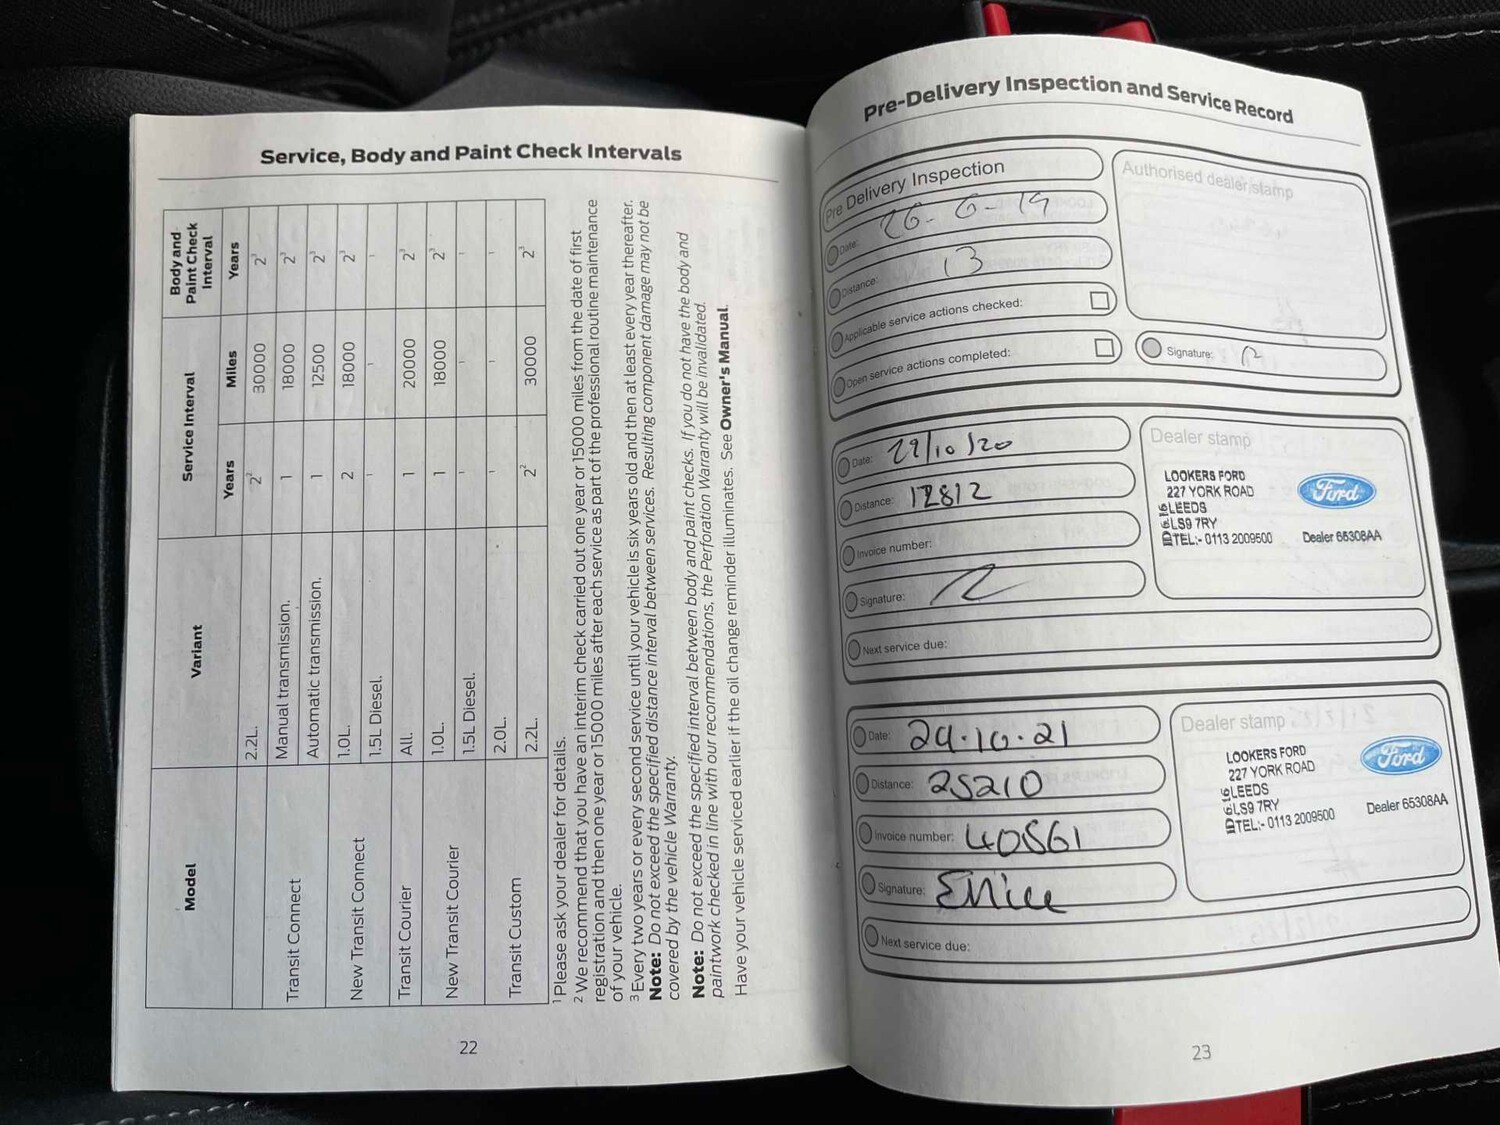 Service, Body and Paint Check Intervals
Model Variant Service Interval Body and Paint Check Interval
Years Miles Years
2.2L. 2² 30000 2³
Transit Connect Manual transmission. 1 18000 2³
Automatic transmission. 1 12500 2³
New Transit Connect 1.0L. 2 18000 2³
1.5L Diesel. ¹ ¹ ¹
Transit Courier All. 1 20000 2³
New Transit Courier 1.0L. 1 18000 2³
1.5L Diesel. ¹ ¹ ¹
Transit Custom 2.0L. ¹ ¹ ¹
2.2L. 2² 30000 2³
¹ Please ask your dealer for details.
² We recommend that you have an interim check carried out one year or 15000 miles from the date of first
registration and then one year or 15000 miles after each service as part of the professional routine maintenance
of your vehicle.
³ Every two years or every second service until your vehicle is six years old and then at least every year thereafter.
Note: Do not exceed the specified distance interval between services. Resulting component damage may not be
covered by the vehicle Warranty.
Note: Do not exceed the specified interval between body and paint checks. If you do not have the body and
paintwork checked in line with our recommendations, the Perforation Warranty will be invalidated.
Have your vehicle serviced earlier if the oil change reminder illuminates. See Owner's Manual.
22
Pre-Delivery Inspection and Service Record
Pre Delivery Inspection
Date: 26-6-19
Distance: 13
Applicable service actions checked:
Open service actions completed:
Authorised dealer stamp
Signature:
Date: 29/10/20
Distance: 12812
Invoice number:
Signature:
Next service due:
Dealer stamp
LOOKERS FORD
227 YORK ROAD
LEEDS
LS9 7RY
TEL:- 0113 2009500
Ford
Dealer 65308AA
Date: 24.10.21
Distance: 25210
Invoice number: 40561
Signature:
Next service due:
Dealer stamp
LOOKERS FORD
227 YORK ROAD
LEEDS
LS9 7RY
TEL:- 0113 2009500
Ford
Dealer 65308AA
23